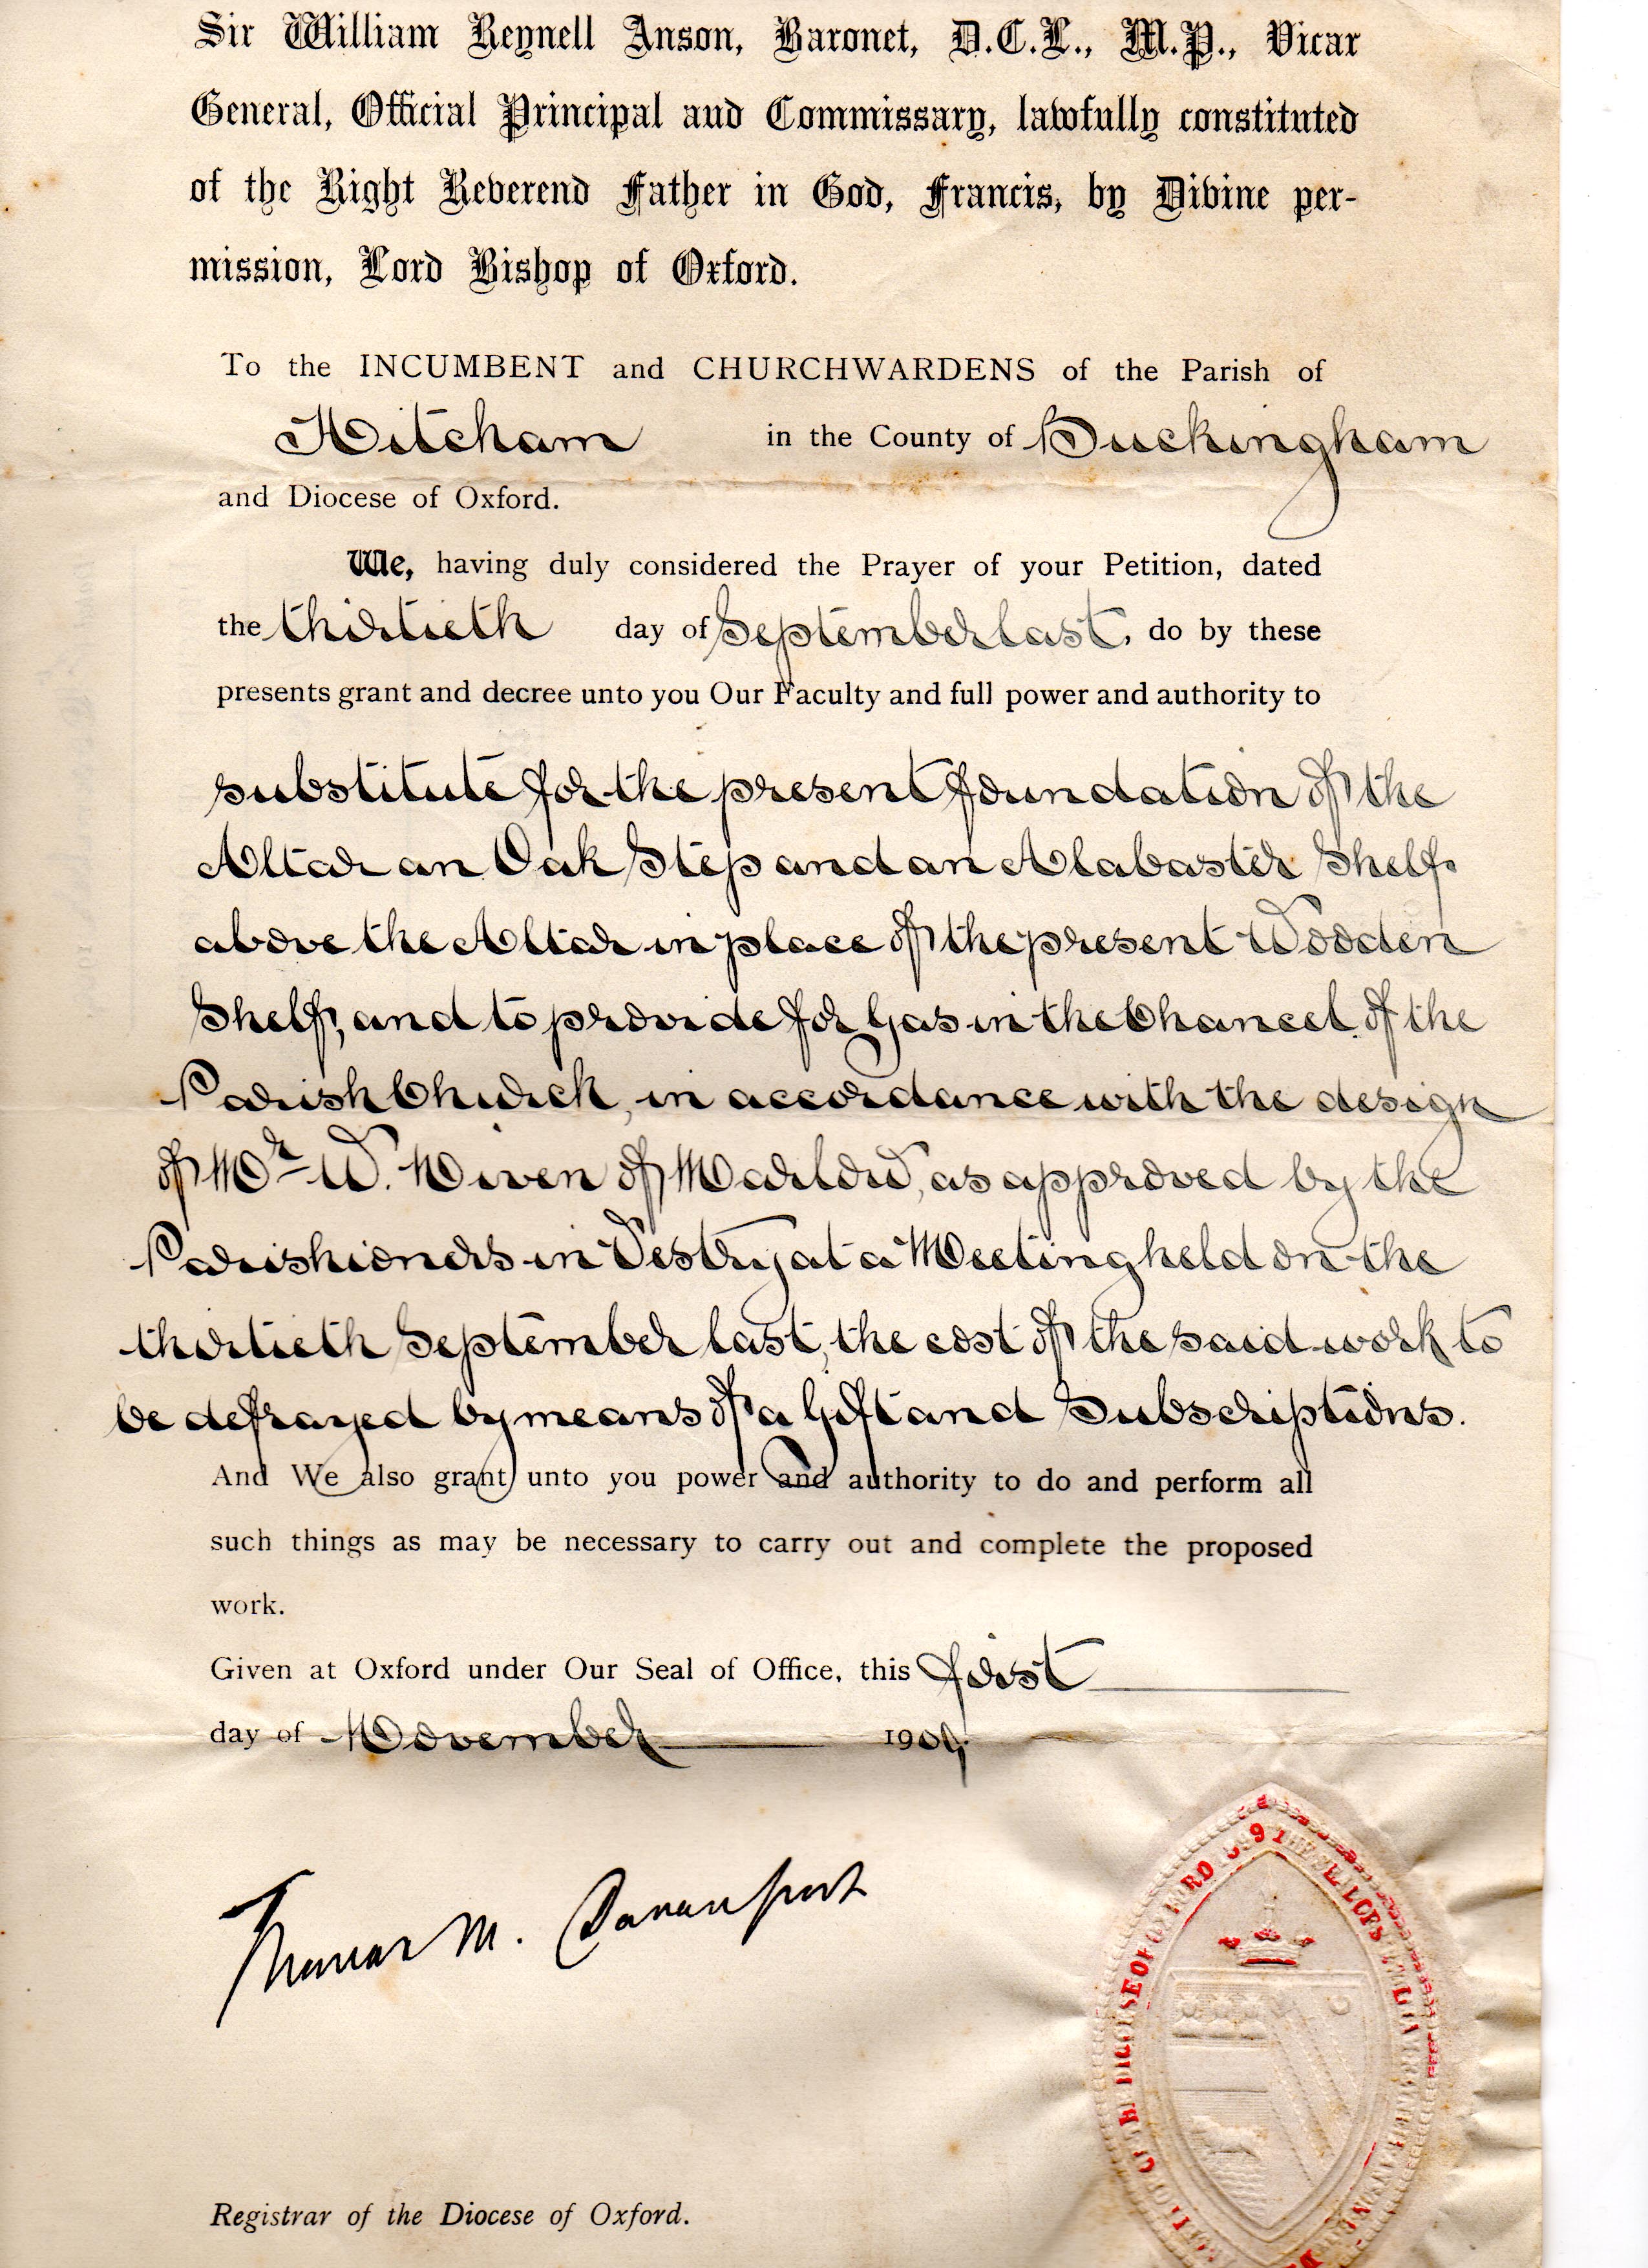 Sir William Reynell Anson, Baronet, D.C.L., M.P., Vicar
General, Official Principal and Commissary, lawfully constituted
of the Right Reverend Father in God, Francis, by Divine per-
mission, Lord Bishop of Oxford.
To the INCUMBENT and CHURCHWARDENS of the Parish of
Hitcham in the County of Buckingham
and Diocese of Oxford.
We, having duly considered the Prayer of your Petition, dated
the thirtieth day of September last, do by these
presents grant and decree unto you Our Faculty and full power and authority to
substitute for the present foundation of the
Altar an Oak Step and an Alabaster Shelf
above the Altar in place of the present Wooden
Shelf, and to provide for Gas in the Chancel of the
Parish Church, in accordance with the design
of Mr W. Niven of Marlow, as approved by the
Parishioners in Vestry at a Meeting held on the
thirtieth September last, the cost of the said work to
be defrayed by means of a Gift and Subscriptions.
And We also grant unto you power and authority to do and perform all
such things as may be necessary to carry out and complete the proposed
work.
Given at Oxford under Our Seal of Office, this first
day of November 1909.
Thomas M. Davenport
Registrar of the Diocese of Oxford.
DIOCESE OF